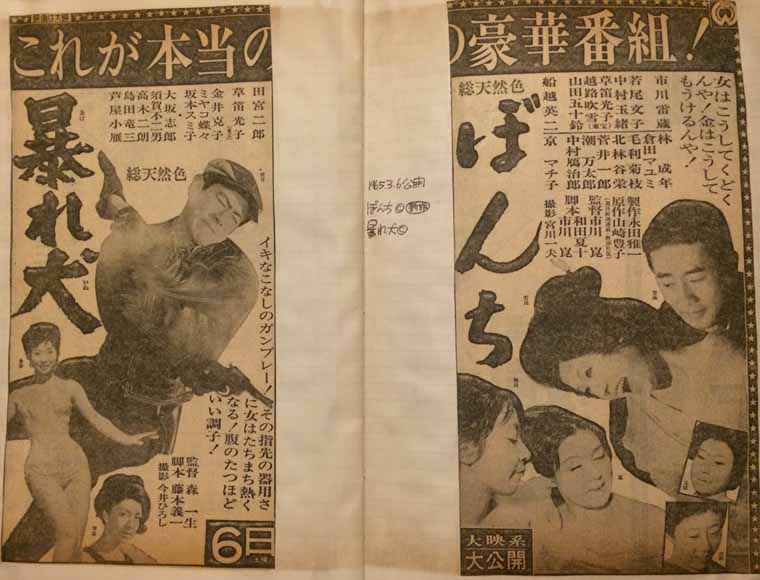 これが本当の
田宮二郎
草笛光子
金井克子
ミヤコ蝶々
坂本スミ子
大坂志郎
須賀不二男
高木二朗
島田竜三
芦屋小雁
総天然色
暴れ犬
あば
いぬ
イキなこなしのガンプレー!その指先の器用さ
に女はたちまち熱く
なる!腹のたつほど
いい調子!
監督 森 一生
脚本 藤本義一
撮影 今井ひろし
6日
3.6公開
ぼんち◎
暴れ犬◎
の豪華番組!
女はこうしてくどく
んや!金はこうして
もうけるんや!
総天然色
ぼんち
市川雷蔵 林 成年
若尾文子 倉田マユミ
中村玉緒 毛利菊枝
草笛光子(東宝) 北林谷栄
越路吹雪(東宝) 菅井一郎
山田五十鈴 潮 万太郎
中村鴈治郎
船越英二 京 マチ子
製作永田雅一
原作山崎豊子
監督市川 崑
脚本和田夏十
市川 崑
撮影宮川一夫
大映系
大公開